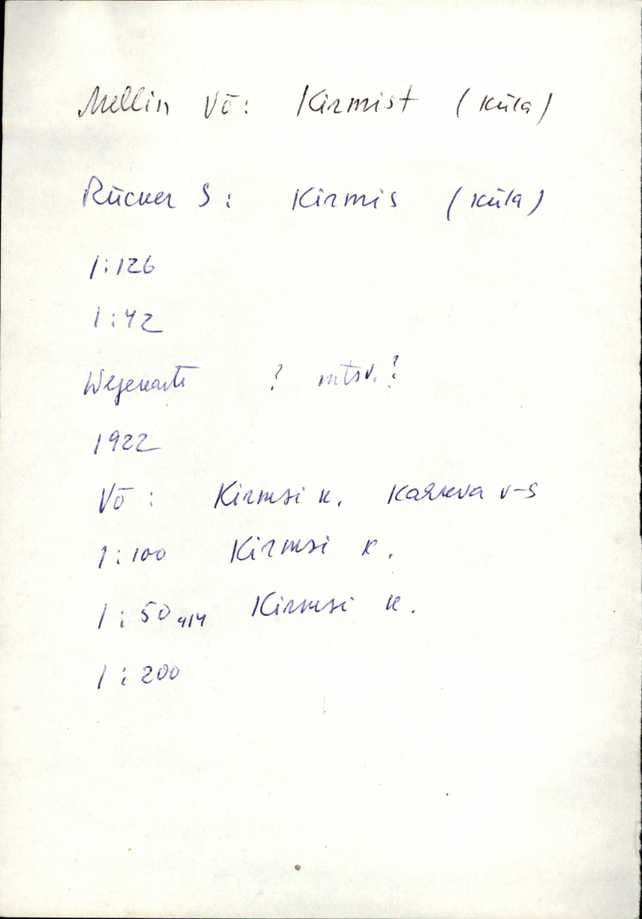 Mellin Võ: Kirmist (küla)
Rücker S: Kirmis (küla)
1:126
1:42
Wegekarte ? mtsv.?
1922
Võ: Kirmsi k. Kahkva v-s
1:100 Kirmsi k.
1:50 414 Kirmsi k.
1:200